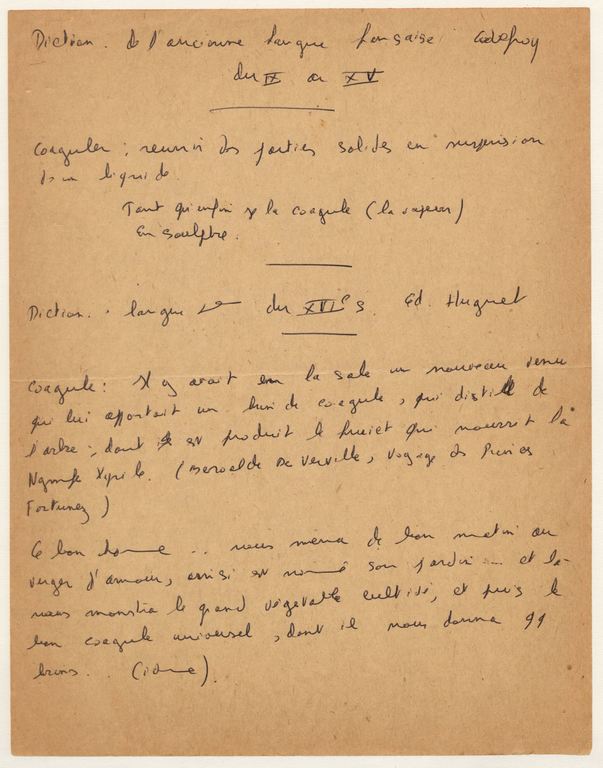 Diction. de l'ancienne langue française Godefroy
du IX au XV
Coaguler : reunir des parties solides en suspension
dans un liquide.
Tant qu'enfin se la coagule (la vapeur)
En soulphre.
Diction. langue du XVIe s. Ed. Huguet
Coagule : Il y avait en la sale un nouveau venu
qui lui apportait un de coagule, qui distille de
l'arbre, dont est produit le fruict qui nourrit la
Nymfe Xyrile. (Beroalde De Verville, Voyage des Princes
Fortunez)
Ce bon homme .. nous mena de bon matin au
verger d'amour, ainsi est nommé son jardin ... et là
nous monstra le grand végétable cultivé, et puis le
bon coagule universel, dont il nous donna qq
brins. . (idem).